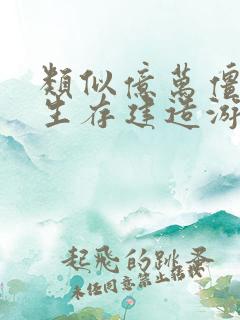 類似億萬僵
生存建造游
起飛的跳蚤
未經同意禁止轉